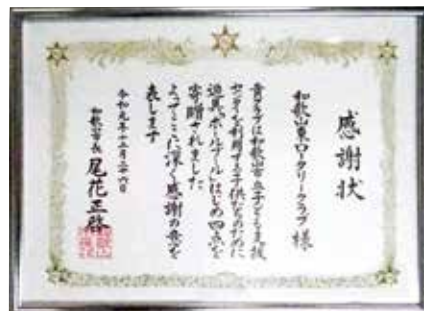 感謝状
和歌山東ロータリークラブ 様
貴クラブは和歌山市立子ども支援
センターを利用する子供たちのために
遊具「ボールプール」はじめ四点を
寄贈されました
よってここに深く感謝の意を
表します
令和元年十二月二十六日
和歌山市長 尾花正啓